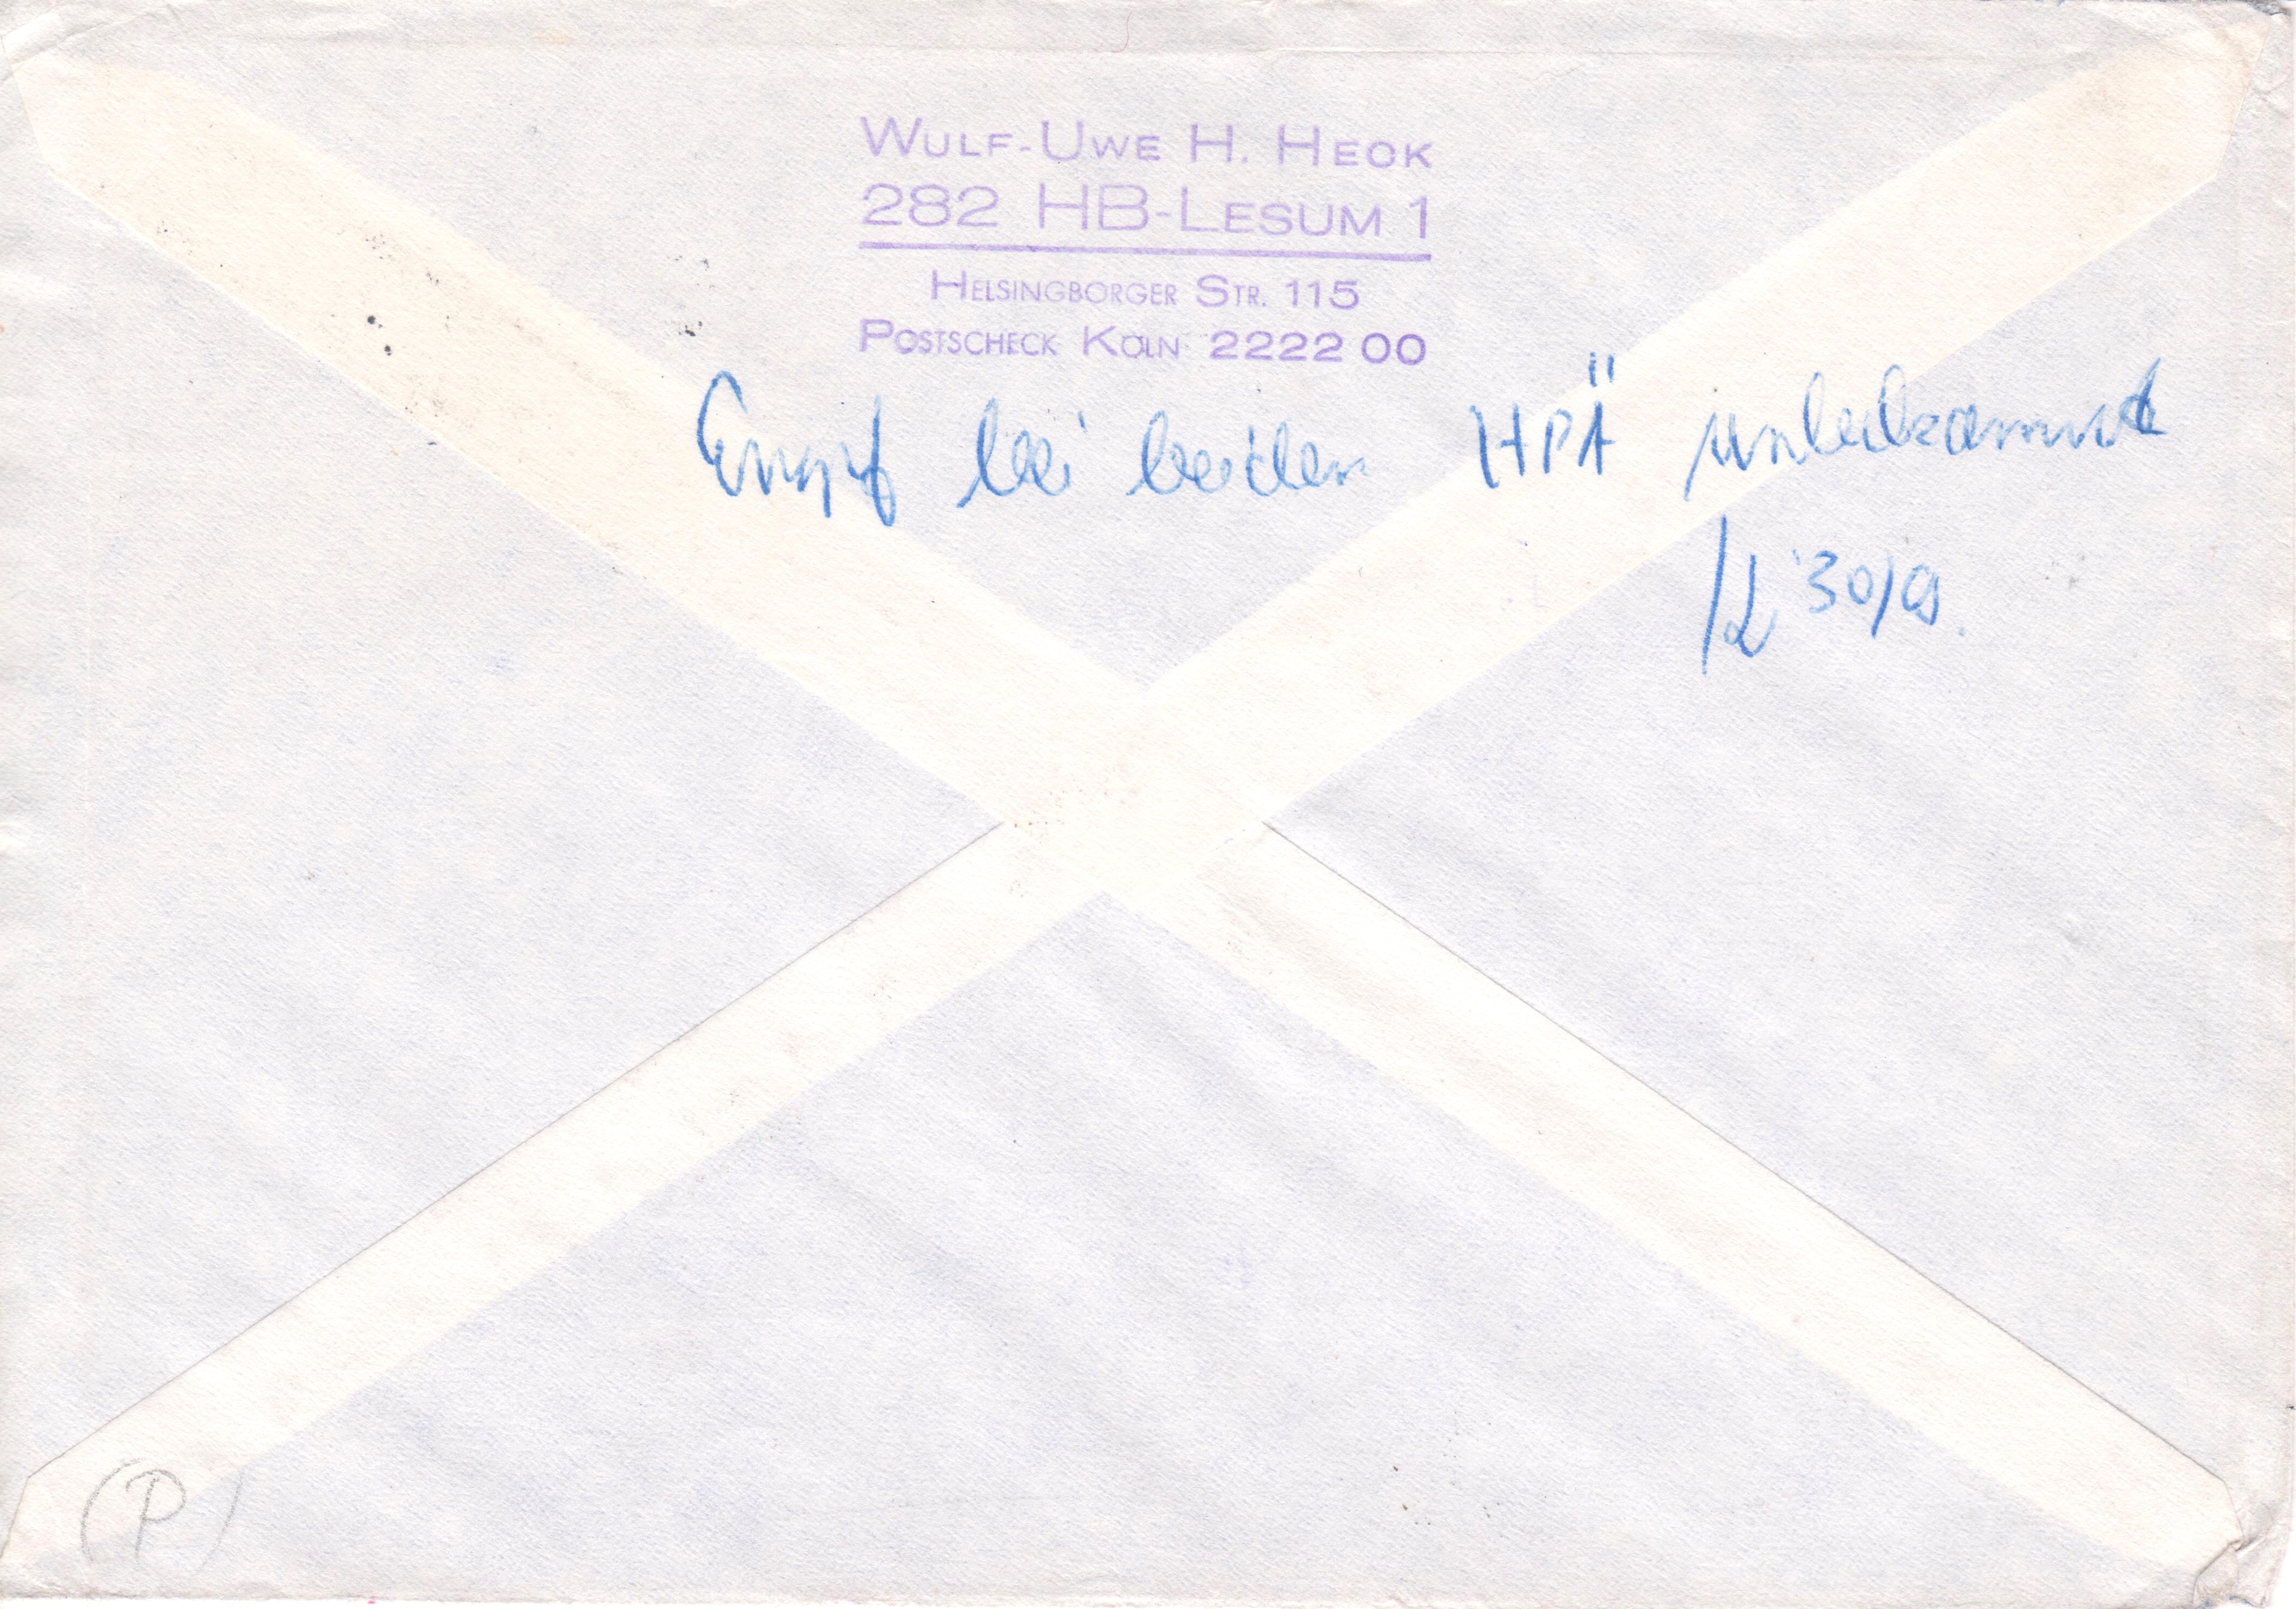 WULF-UWE H. HECK
282 HB-LESUM 1
HELSINGBORGER STR. 115
POSTSCHECK KÖLN 2222 00
Empf bei beiden HPÄ unbekannt
30/9.
(P)